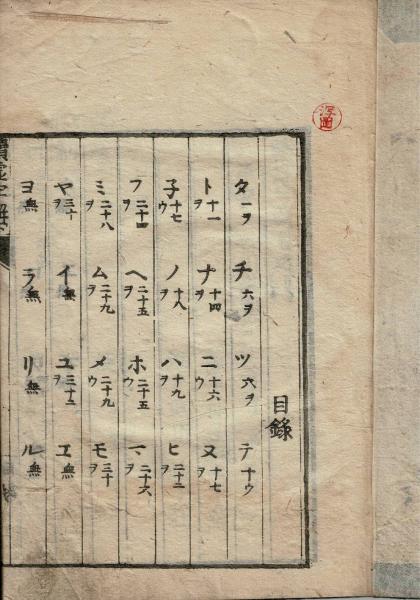 目錄
タ一ヲ チ六ヲ ツ六ヲ テ十ウ
ト十一ヲ ナ十四ヲ ニ十六ウ ヌ十七ヲ
子十七ウ ノ十八ヲ ハ十九ウ ヒ二十二ヲ
フ二十四ヲ ヘ二十五ヲ ホ二十五ウ マ二十六ヲ
ミ二十八ヲ ム二十九ヲ メ二十九ウ モ三十ヲ
ヤ三十ヲ イ無 ユ三十二ヲ エ無
ヨ無 ラ無 リ無 ル無